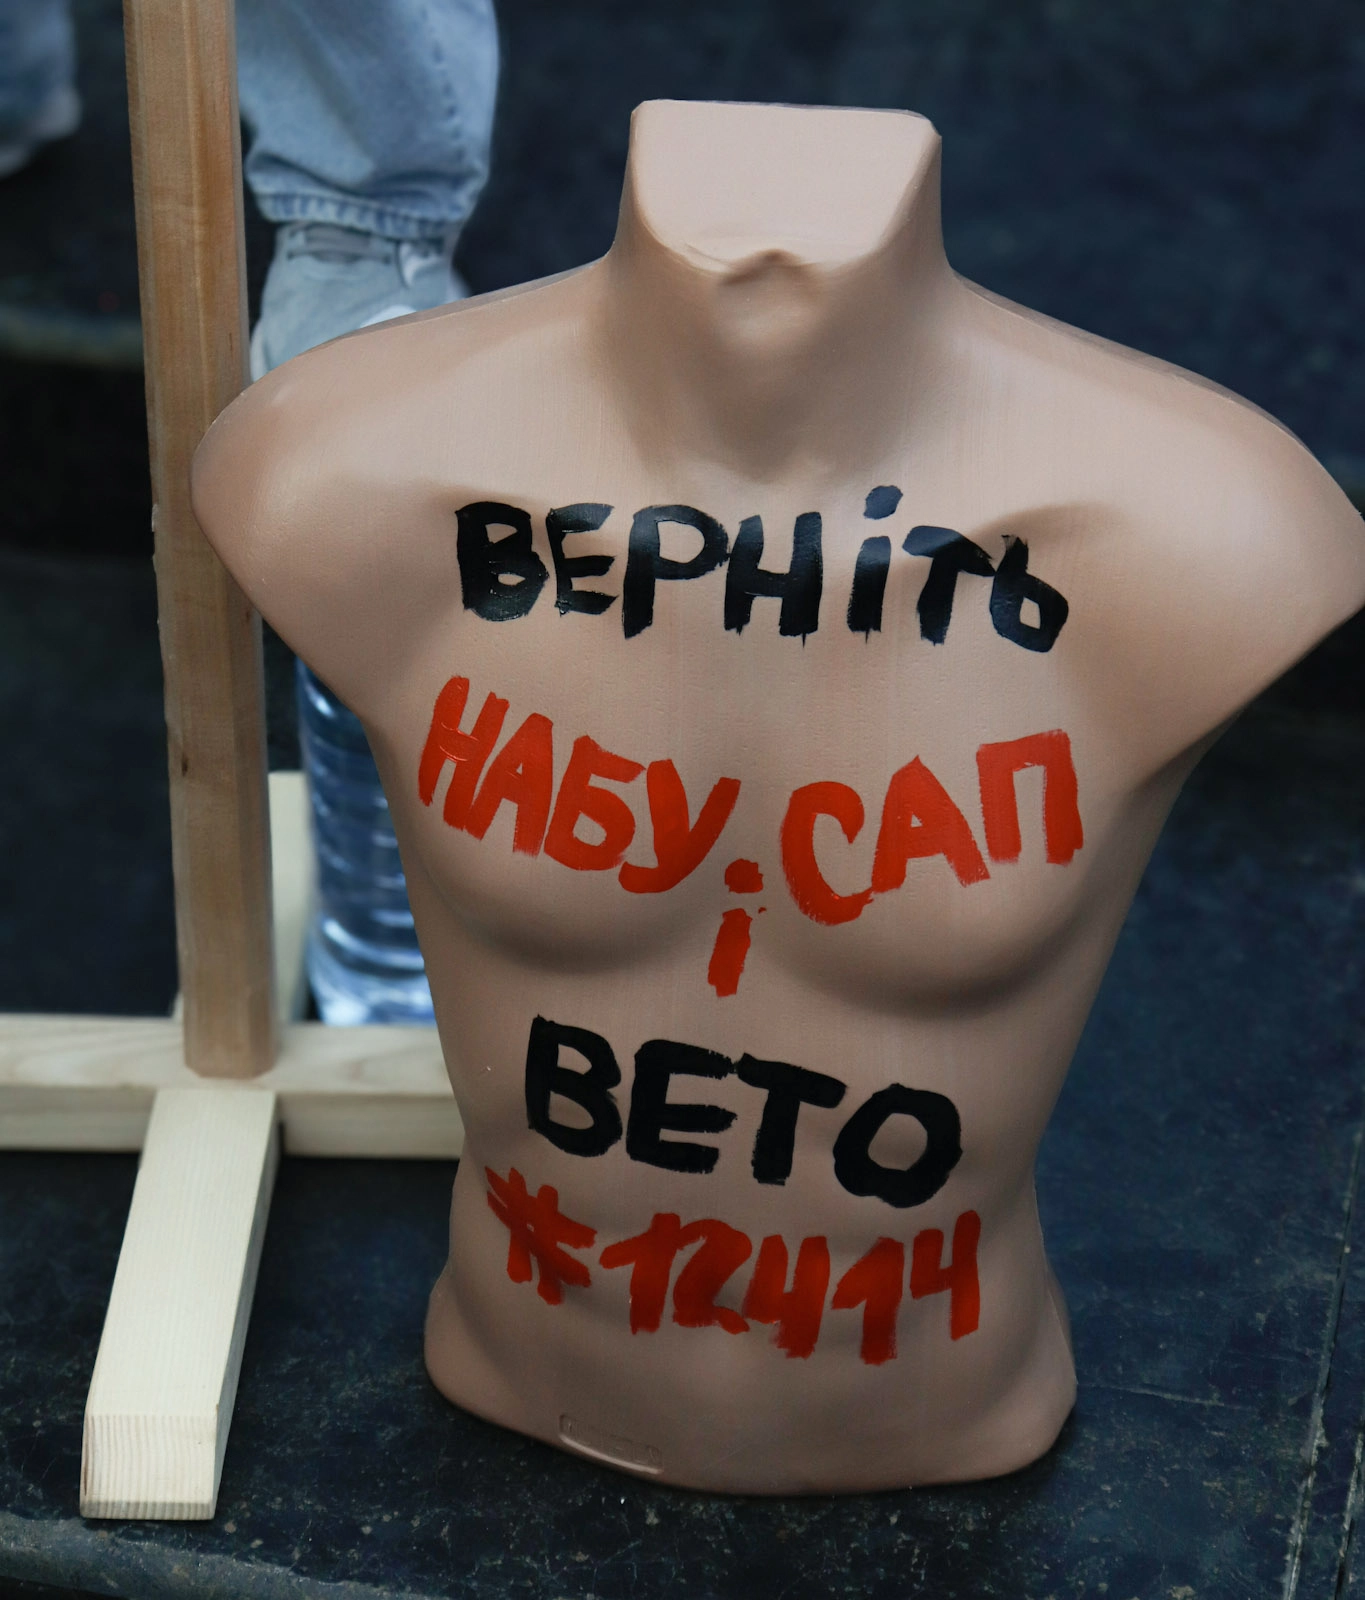 ВЕРНіТЬ
НАБУ. САП
і
ВЕТО
#12414